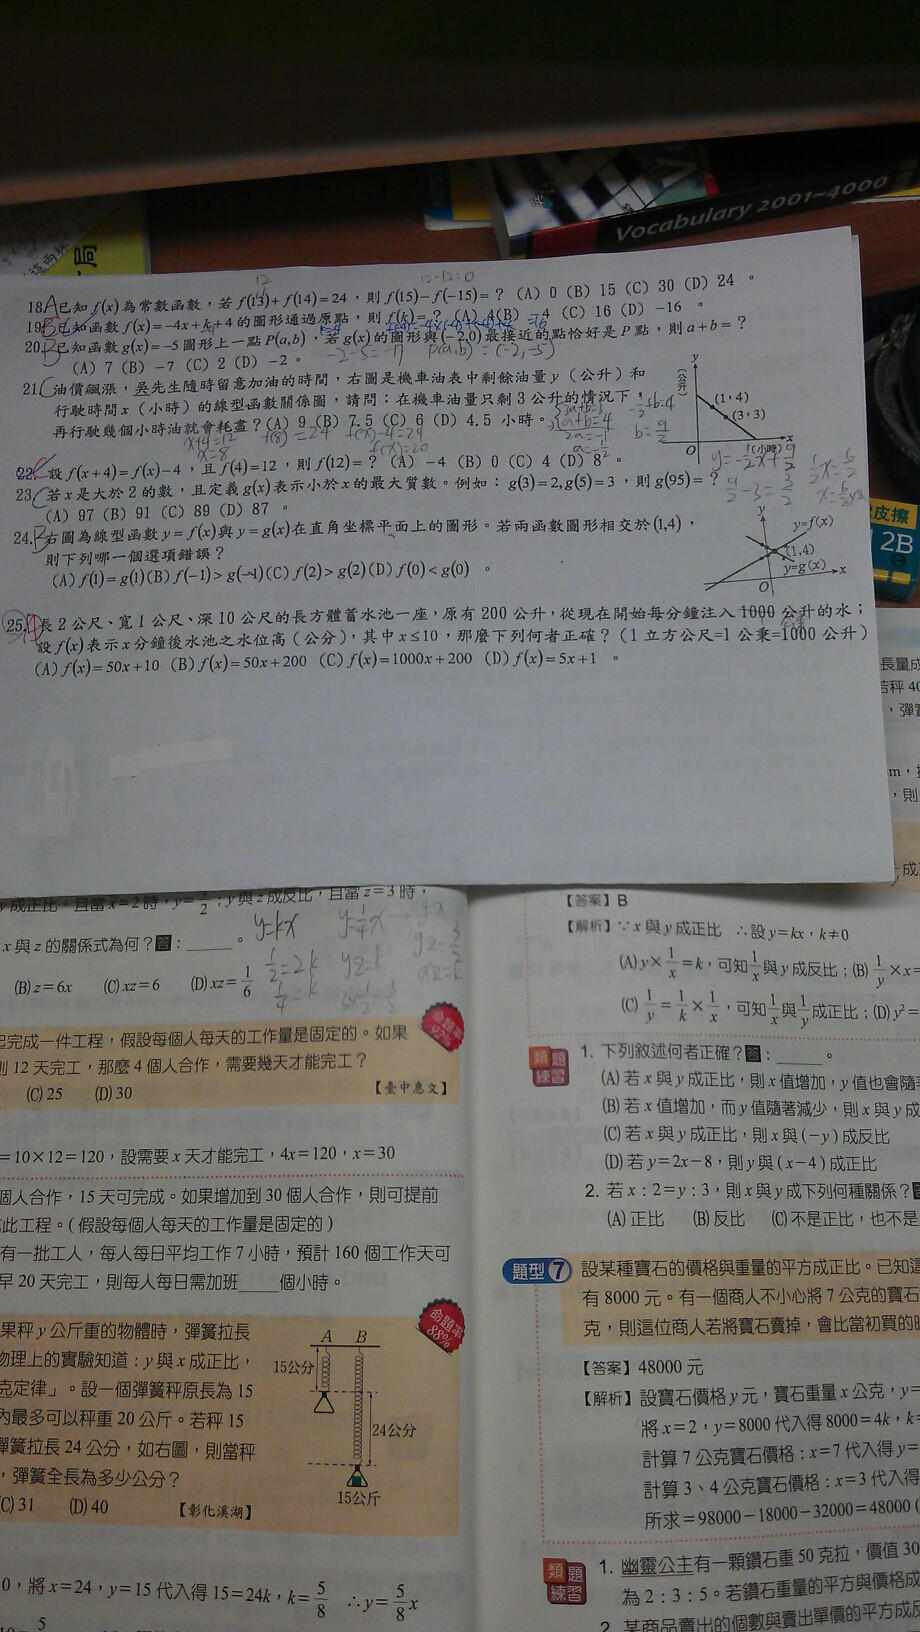 Vocabulary 2001~4000
12
12-12=0
18. A 已知 f(x) 為常數函數，若 f(13)+f(14)=24，則 f(15)-f(-15)=？ (A) 0 (B) 15 (C) 30 (D) 24 。
19. B 已知函數 f(x)=-4x+k+4 的圖形通過原點，則 f(k)=？ (A) 4 (B) -4 (C) 16 (D) -16 。
20. B 已知函數 g(x)=-5 圖形上一點 P(a,b)，若 g(x) 的圖形與 (-2,0) 最接近的點恰好是 P 點，則 a+b=？
(A) 7 (B) -7 (C) 2 (D) -2 。
-2-5=-7 P(a,b)=(-2,-5)
21. C 油價飆漲，吳先生隨時留意加油的時間，右圖是機車油表中剩餘油量 y（公升）和
行駛時間 x（小時）的線型函數關係圖，請問：在機車油量只剩 3 公升的情況下，
再行駛幾個小時油就會耗盡？(A) 9 (B) 7.5 (C) 6 (D) 4.5 小時。
y
(公升)
(1,4)
(3,3)
O
(小時)
x
x+4=12
x=8
f(8)=24
f(x)-4=24
f(x)=20
22. 設 f(x+4)=f(x)-4，且 f(4)=12，則 f(12)=？ (A) -4 (B) 0 (C) 4 (D) 8 。
23. C 若 x 是大於 2 的數，且定義 g(x) 表示小於 x 的最大質數。例如：g(3)=2,g(5)=3，則 g(95)=？
(A) 97 (B) 91 (C) 89 (D) 87 。
24. B 右圖為線型函數 y=f(x) 與 y=g(x) 在直角坐標平面上的圖形。若兩函數圖形相交於 (1,4)，
則下列哪一個選項錯誤？
(A) f(1)=g(1) (B) f(-1)>g(-1) (C) f(2)>g(2) (D) f(0)<g(0) 。
y
y=f(x)
(1,4)
y=g(x)
O
x
2B
25. A 長 2 公尺、寬 1 公尺、深 10 公尺的長方體蓄水池一座，原有 200 公升，從現在開始每分鐘注入 1000 公升的水；
設 f(x) 表示 x 分鐘後水池之水位高（公分），其中 x≤10，那麼下列何者正確？（1 立方公尺=1 公秉=1000 公升）
(A) f(x)=50x+10 (B) f(x)=50x+200 (C) f(x)=1000x+200 (D) f(x)=5x+1 。
成正比，且當 x=2 時，y=1/2；y 與 z 成反比，且當 z=3 時，
x 與 z 的關係式為何？答：_____。
(B) z=6x (C) xz=6 (D) xz=1/6
y=kx
1/2=2k
1/4=k
y=1/4x
yz=k
完成一件工程，假設每個人每天的工作量是固定的。如果
12 天完工，那麼 4 個人合作，需要幾天才能完工？
(C) 25 (D) 30 【臺中惠文】
命題率
92%
=10×12=120，設需要 x 天才能完工，4x=120，x=30
個人合作，15 天可完成。如果增加到 30 個人合作，則可提前
此工程。(假設每個人每天的工作量是固定的)
有一批工人，每人每日平均工作 7 小時，預計 160 個工作天可
早 20 天完工，則每人每日需加班____個小時。
果秤 y 公斤重的物體時，彈簧拉長
物理上的實驗知道：y 與 x 成正比，
克定律」。設一個彈簧秤原長為 15
內最多可以秤重 20 公斤。若秤 15
彈簧拉長 24 公分，如右圖，則當秤
，彈簧全長為多少公分？
(C) 31 (D) 40 【彰化溪湖】
命題率
88%
A B
15公分
24公分
15公斤
0，將 x=24，y=15 代入得 15=24k，k=5/8 ∴y=5/8x
【答案】B
【解析】∵x 與 y 成正比 ∴設 y=kx，k≠0
(A) y×1/x=k，可知 1/x 與 y 成反比；(B) 1/y×x=
(C) 1/y=1/k×1/x，可知 1/x 與 1/y 成正比；(D) y²=
類題
練習
1. 下列敘述何者正確？答：_____。
(A) 若 x 與 y 成正比，則 x 值增加，y 值也會隨
(B) 若 x 值增加，而 y 值隨著減少，則 x 與 y 成
(C) 若 x 與 y 成正比，則 x 與 (-y) 成反比
(D) 若 y=2x-8，則 y 與 (x-4) 成正比
2. 若 x：2=y：3，則 x 與 y 成下列何種關係？
(A) 正比 (B) 反比 (C) 不是正比，也不是
題型 7 設某種寶石的價格與重量的平方成正比。已知
有 8000 元。有一個商人不小心將 7 公克的寶石
克，則這位商人若將寶石賣掉，會比當初買的
【答案】48000 元
【解析】設寶石價格 y 元，寶石重量 x 公克，y=
將 x=2，y=8000 代入得 8000=4k，k=
計算 7 公克寶石價格：x=7 代入得 y=
計算 3、4 公克寶石價格：x=3 代入得
所求=98000-18000-32000=48000
類題
練習
1. 幽靈公主有一顆鑽石重 50 克拉，價值 30
為 2：3：5。若鑽石重量的平方與價格成
2. 某商品賣出的個數與賣出單價的平方成反